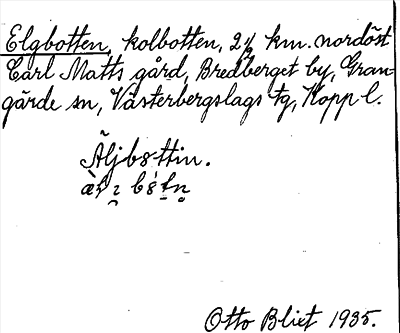 Elgbotten, kolbotten, 2 ½ km. nordöst
Carl Matts gård, Bredberget by, Gran-
gärde sn, Västerbergslags tg, Kopp l.
Äljbsttin.
Otto Blixt 1935.